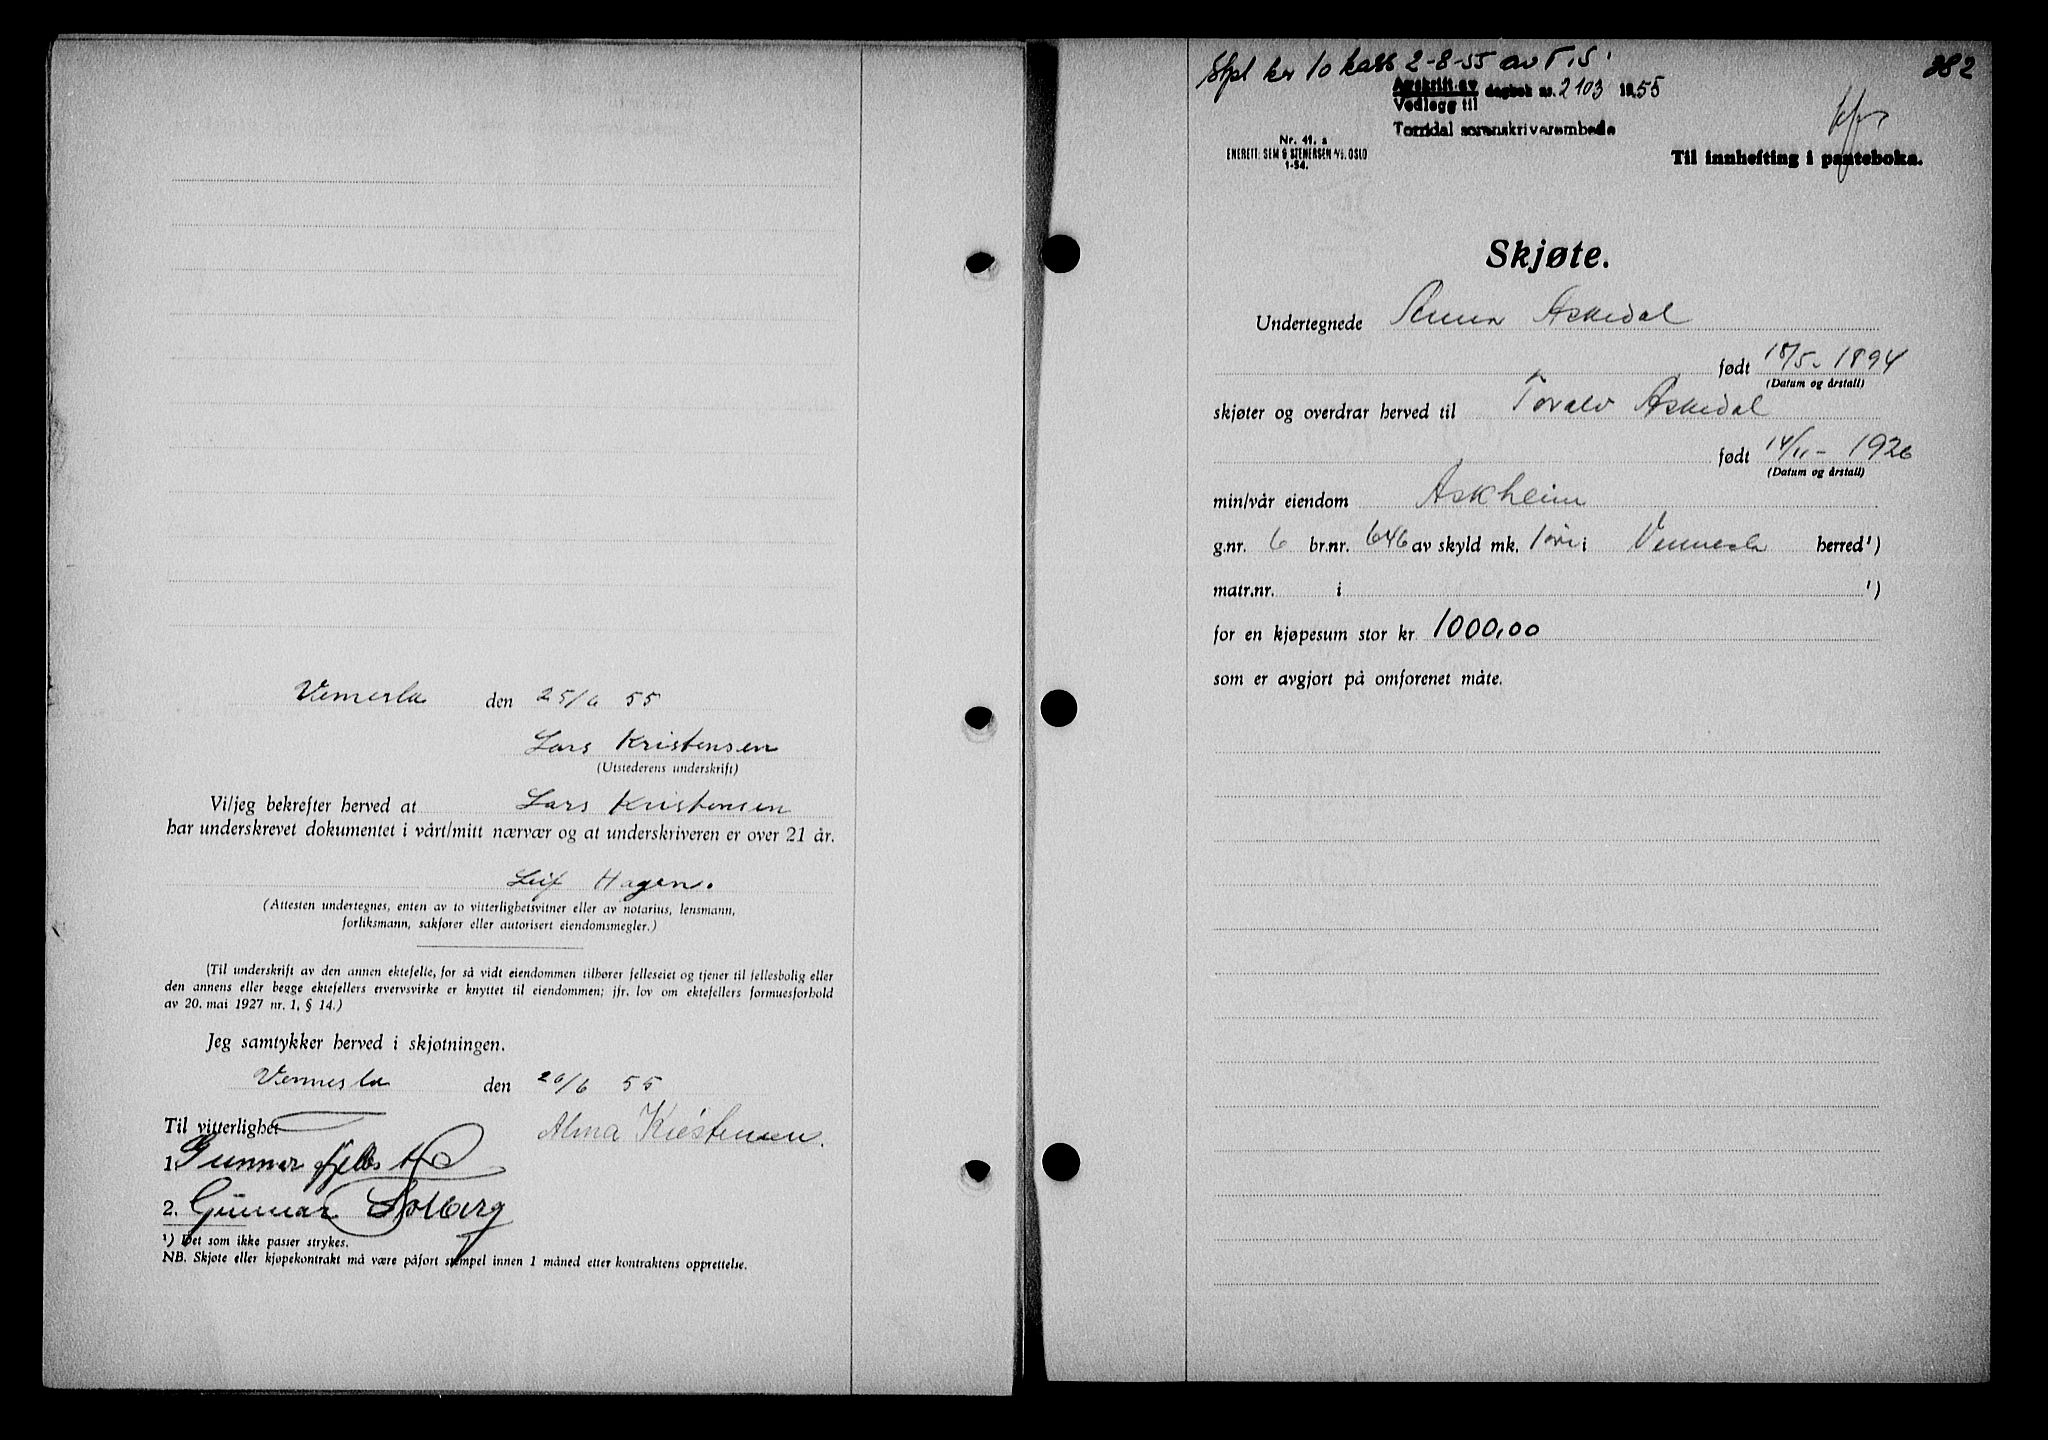 Vennesla den 25/6 55
Lars Kristensen
(Utstederens underskrift)
Vi/jeg bekrefter herved at Lars Kristensen
har underskrevet dokumentet i vårt/mitt nærvær og at underskriveren er over 21 år.
Leif Hagen.
(Attesten undertegnes, enten av to vitterlighetsvitner eller av notarius, lensmann,
forliksmann, sakfører eller autorisert eiendomsmegler.)
(Til underskrift av den annen ektefelle, for så vidt eiendommen tilhører felleseiet og tjener til fellesbolig eller
den annens eller begge ektefellers ervervsvirke er knyttet til eiendommen; jfr. lov om ektefellers formuesforhold
av 20. mai 1927 nr. 1, § 14.)
Jeg samtykker herved i skjøtningen.
Vennesla den 26/6 55
Til vitterlighet Alma Kristensen.
1. Gunnar
2. Gunnar Solberg
¹) Det som ikke passer strykes.
NB. Skjøte eller kjøpekontrakt må være påført stempel innen 1 måned etter kontraktens opprettelse.
382
Stpl kr 10 kass 2-8-55 av T.S.
Avskrift av
Vedlegg til dagbok nr. 2103 1955
Torridal sorenskriverembede
Nr. 41. a
ENERETT: SEM & STENERSEN A/S. OSLO
1-54.
Til innhefting i panteboka.
Skjøte.
Undertegnede Anna Askedal
født 18/5- 1894
(Datum og årstall)
skjøter og overdrar herved til Toralv Askedal
født 14/11- 1926
(Datum og årstall)
min/vår eiendom Askheim
g.nr. 6 br.nr. 646 av skyld mk. 1 øre i Vennesla herred¹)
matr.nr. i ¹)
for en kjøpesum stor kr. 1000,00
som er avgjort på omforenet måte.